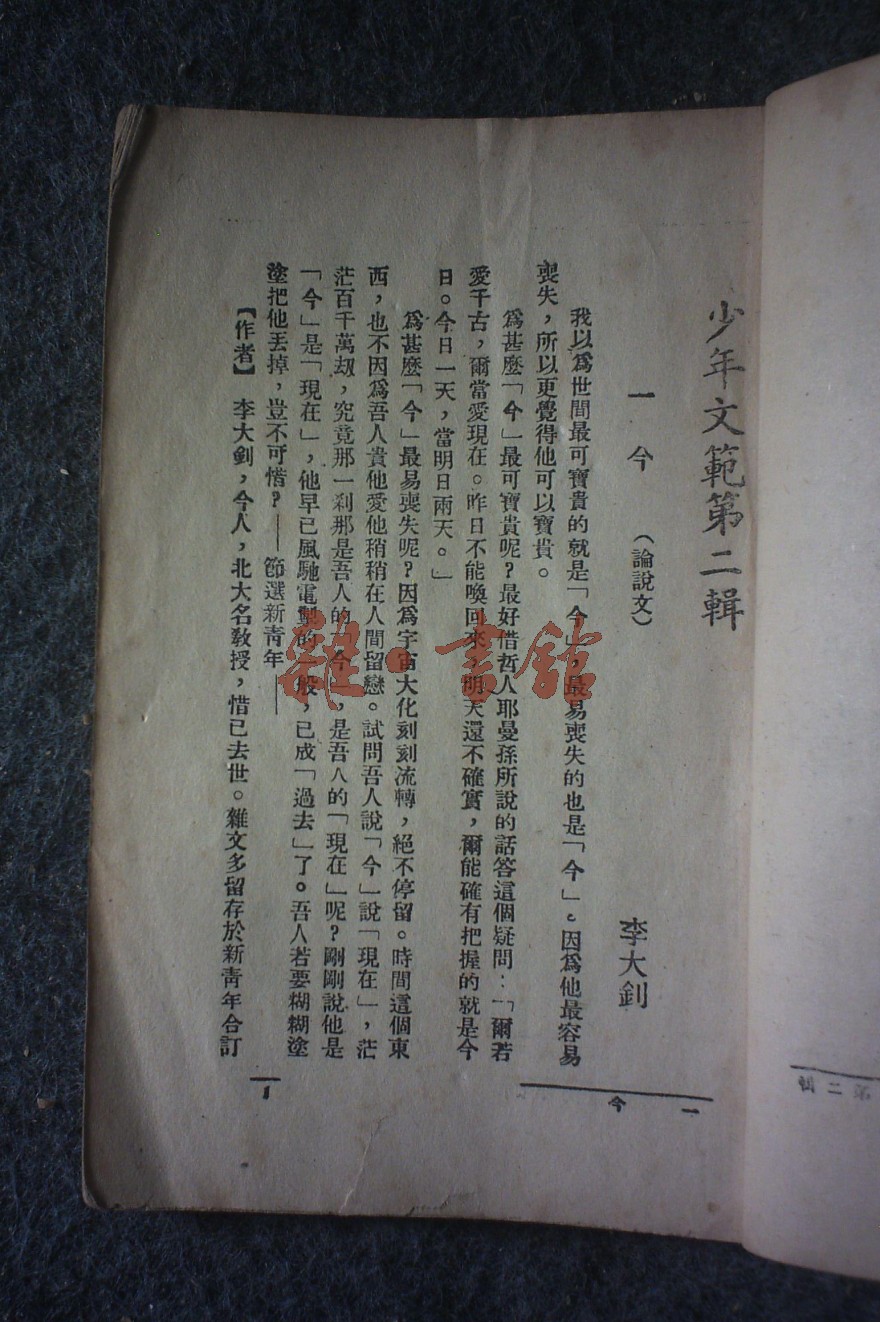 少年文範第二輯
一　今　（論說文）　李大釗
我以爲世間最可寶貴的就是「今」，最易喪失的也是「今」。因爲他最容易
喪失，所以更覺得他可以寶貴。
爲甚麼「今」最可寶貴呢？最好借哲人耶曼孫所說的話答這個疑問：「爾若
愛千古，爾當愛現在。昨日不能喚回來，明天還不確實，爾能確有把握的就是今
日。今日一天，當明日兩天。」
爲甚麼「今」最易喪失呢？因爲宇宙大化刻刻流轉，絕不停留。時間這個東
西，也不因爲吾人貴他愛他稍稍在人間留戀。試問吾人說「今」說「現在」，茫
茫百千萬劫，究竟那一剎那是吾人的「今」，是吾人的「現在」呢？剛剛說他是
「今」是「現在」，他早已風馳電掣的一般，已成「過去」了。吾人若要糊糊塗
塗把他丟掉，豈不可惜？——節選新青年——
【作者】　李大釗，今人，北大名敎授，惜已去世。雜文多留存於新靑年合訂
一　今
1
第二輯
雜·書館